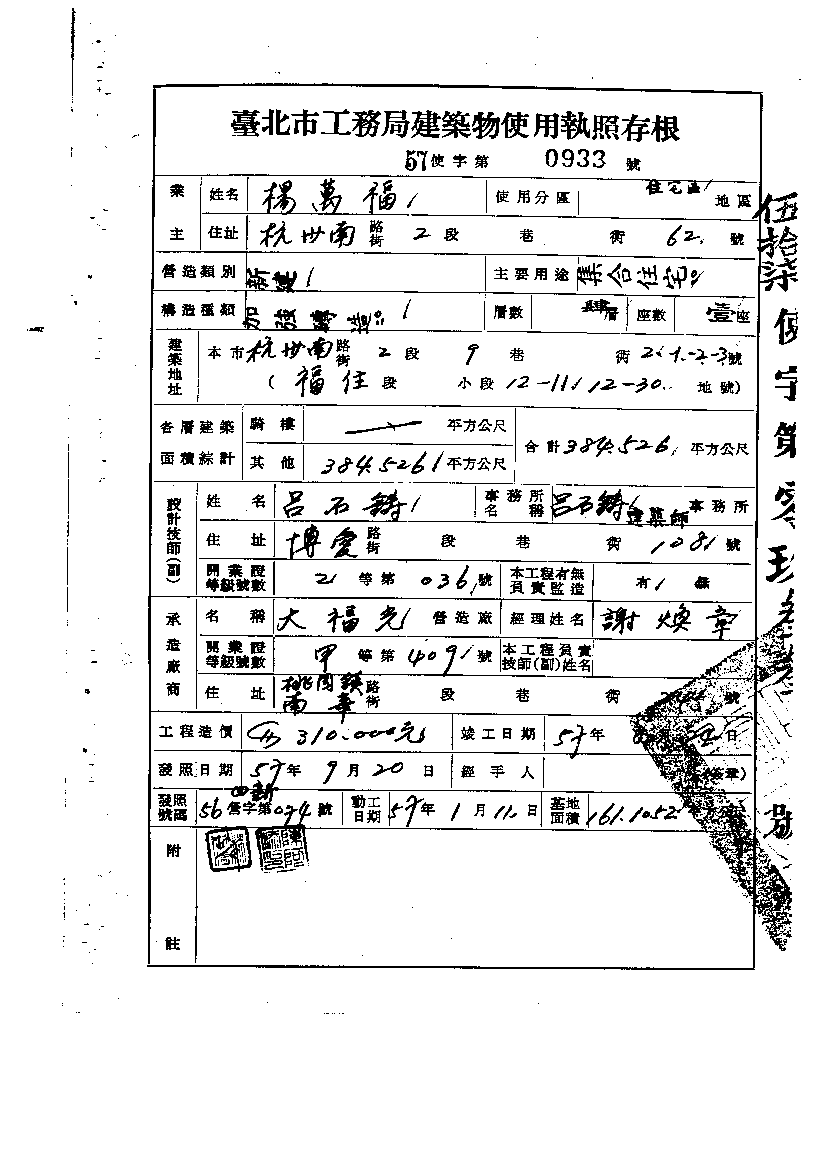 臺北市工務局建築物使用執照存根
57使字第 0933 號
業主 姓名 楊萬福 使用分區 住宅區 地區
住址 杭州南 路街 2 段 巷 街 62 號
營造類別 新建 主要用途 集合住宅
構造種類 加強磚造 層數 肆層 座數 壹座
建築地址 本市 杭州南 路街 2 段 9 巷 街 號
(福住段 小段 12-11 12-30 地號)
各層建築面積綜計 騎樓 平方公尺 合計 384.526 平方公尺
其他 384.526 平方公尺
設計技師(副) 姓名 呂石鑄 事務所名稱 呂石鑄建築師 事務所
住址 博愛 路街 段 巷 街 號
開業證等級號數 等第 036 號 本工程有無負責監造 有
承造廠商 名稱 大福光 營造廠 經理姓名 謝煥章
開業證等級號數 甲 等第 409 號 本工程負責技師(副)姓名
住址 桃園鎮南華 路街 段 巷 街 號
工程造價 310.000元 竣工日期 57年 日
發照日期 57年 9月 20日 經手人 (簽章)
發照號碼 56 營字第 074 號 動工日期 57年 1月 11日 基地面積 161.1052
附註
伍拾柒使字第零玖 號